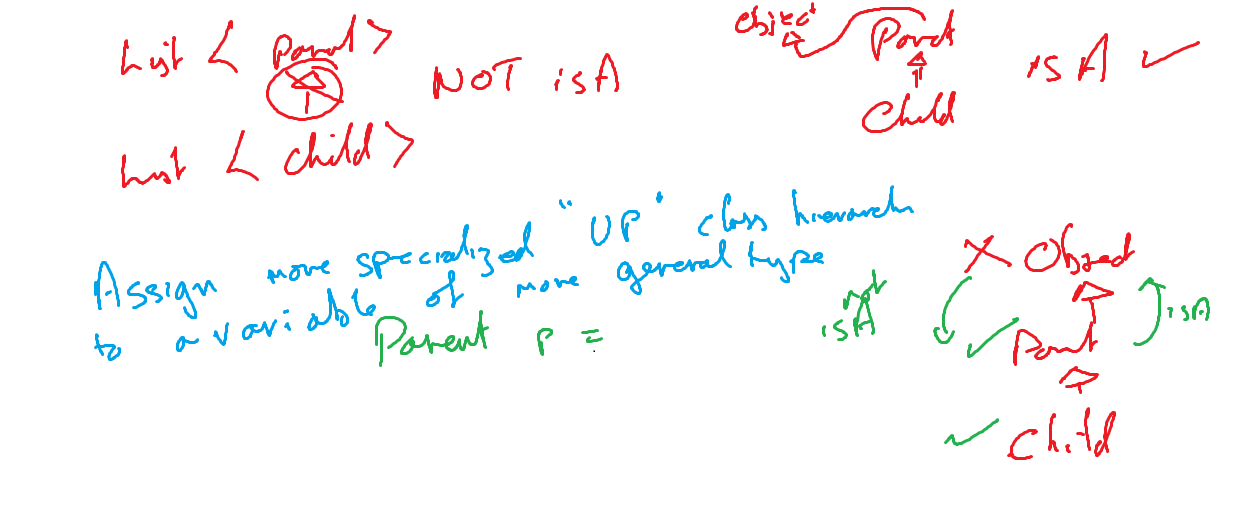 List < Parent >
NOT isA
Object
Parent
Child
isA ✓
List < Child >
Assign more specialized "UP" class hierarch
to a variable of more general type
Parent p =
not
isA
X Object
isA
✓ Parent
✓ Child